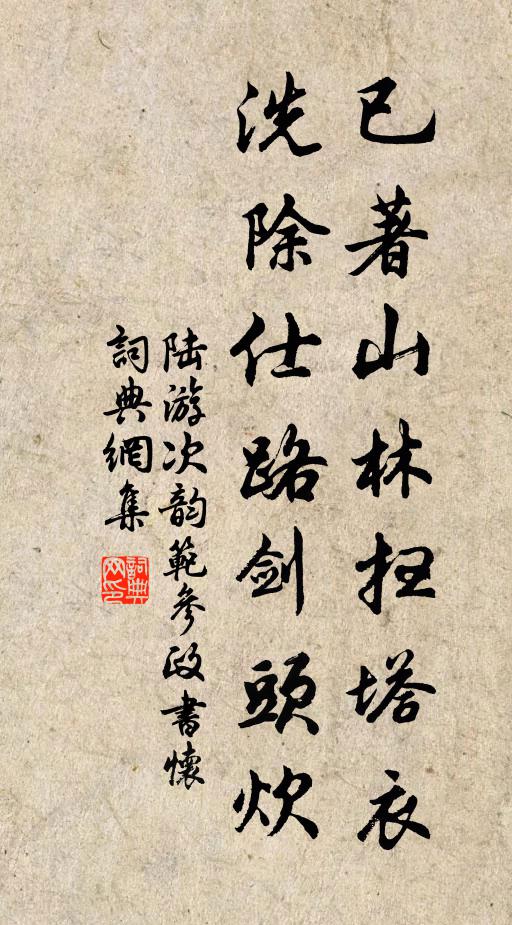 已著山林扫塔衣
洗除仕路剑頭炊
陆游次韵範參政書懷
詞典網集
詞典网印